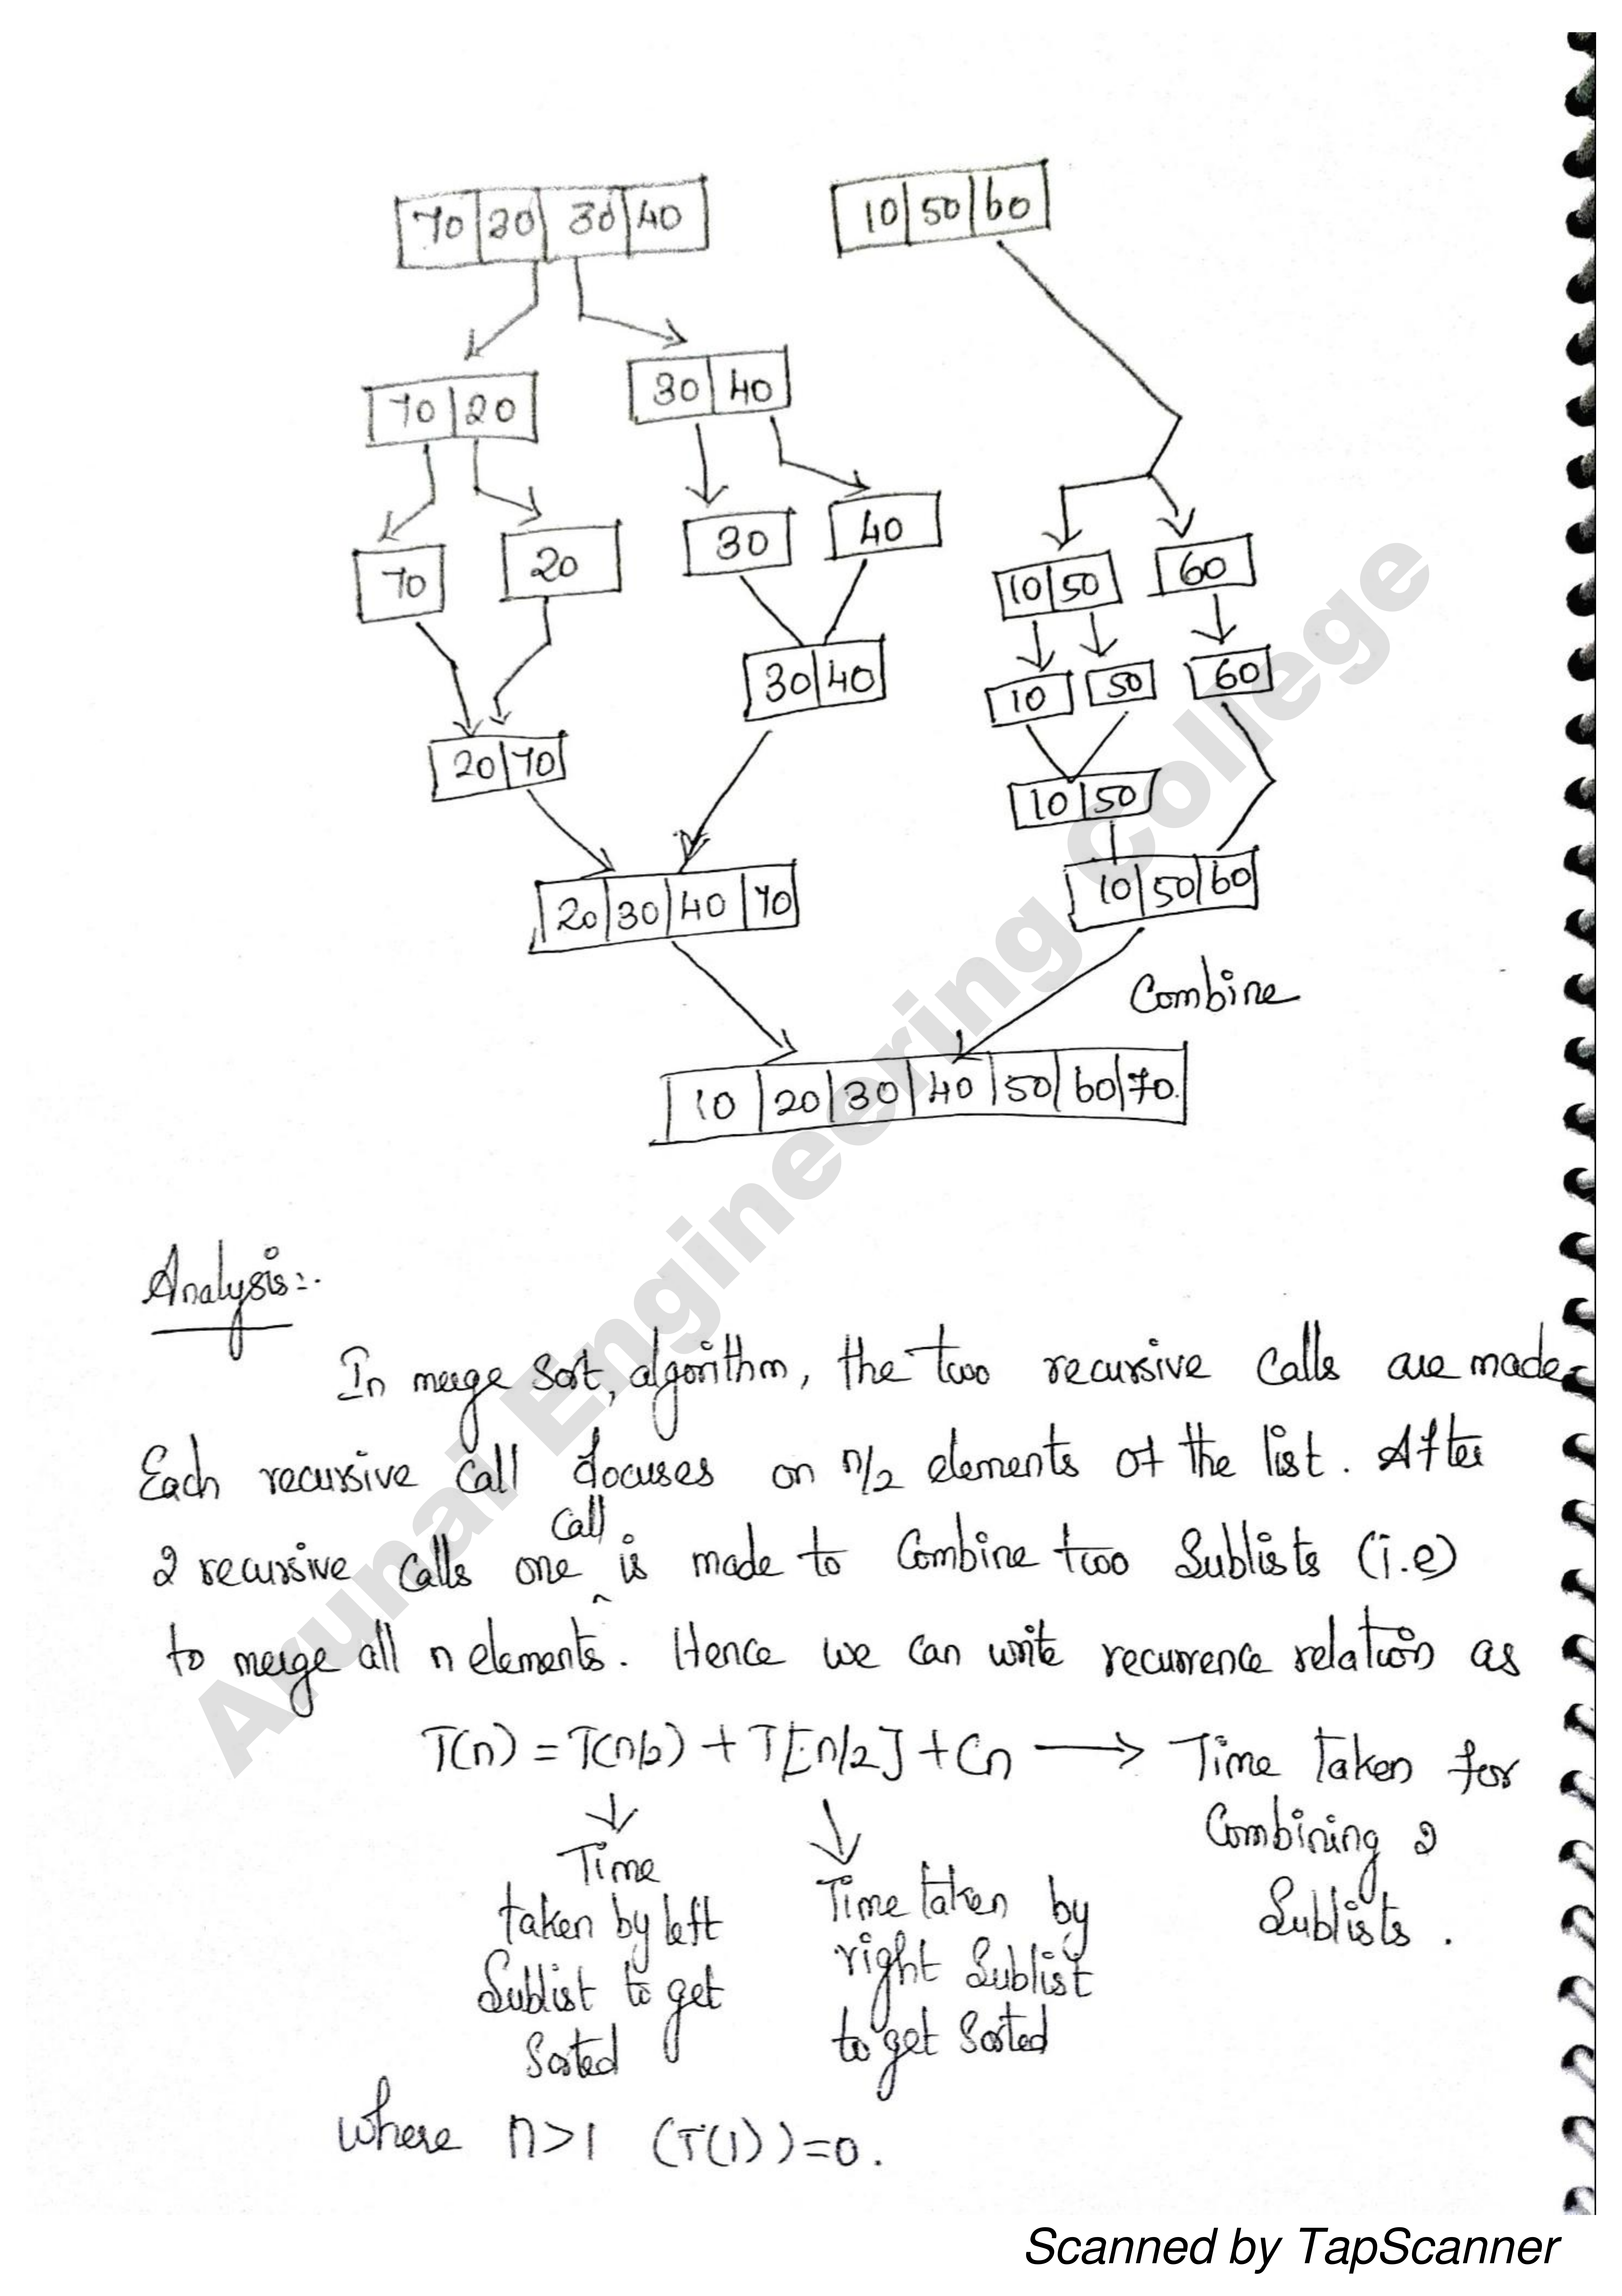 70 20 30 40 10 50 60
70 20 30 40
70 20 30 40 10 50 60
30 40 10 50 60
20 70 10 50
20 30 40 70 10 50 60
Combine
10 20 30 40 50 60 70
Analysis:-
In merge sort, algorithm, the two recursive calls are made
Each recursive call focuses on n/2 elements of the list. After
2 recursive calls one call is made to combine two sublists (i.e)
to merge all n elements. Hence we can write recurrence relation as
T(n) = T(n/2) + T[n/2] + Cn → Time taken for
Combining 2
Sublists.
Time
taken by left
Sublist to get
Sorted
Time taken by
right Sublist
to get Sorted
where n>1 (T(1))=0.
Arunai Engineering College
Scanned by TapScanner